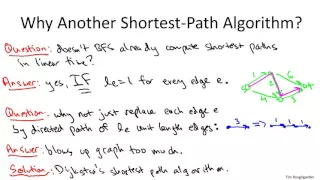 Why Another Shortest-Path Algorithm?
Question: doesn't BFS already compute shortest paths
in linear time?
Answer: yes, IF le=1 for every edge e.
1 6
4 3
Question: why not just replace each edge e
by directed path of le unit length edges:
3 => 1 1 1
Answer: blows up graph too much.
Solution: Dijkstra's shortest path algorithm.
Tim Roughgarden